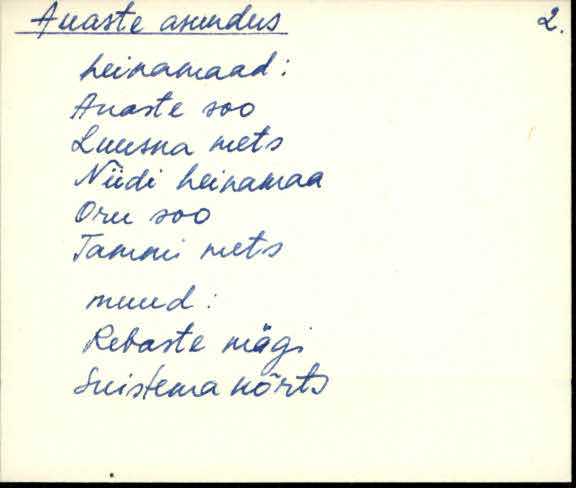 Auaste asundus 2.
heinamaad:
Auaste soo
Luusna mets
Niidi heinamaa
Oru soo
Tammi mets
muud:
Rebaste mägi
Suistema kõrts